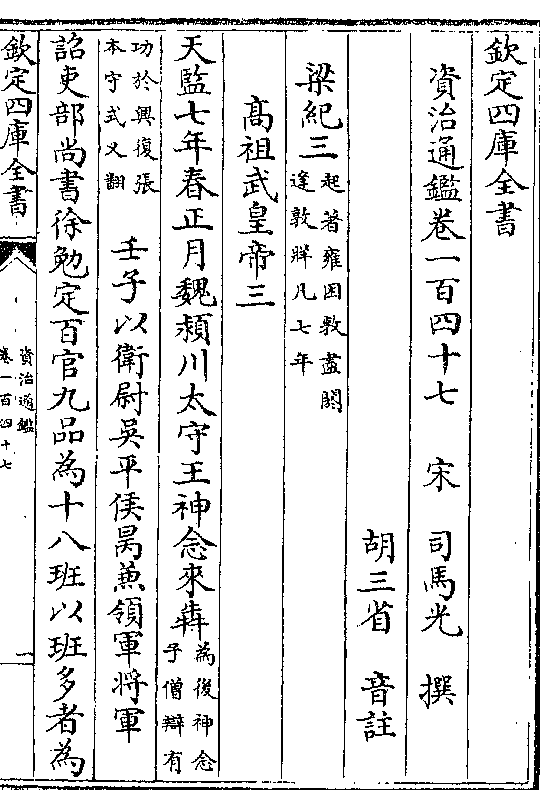 欽定四庫全書
資治通鑑卷一百四十七　宋　司馬光　撰
胡三省　音註
梁紀三起著雍困敦盡閼逢敦牂凡七年
高祖武皇帝三
天監七年春正月魏潁川太守王神念來犇為後神念子僧辯有
功於興復張本守式又翻　壬子以衛尉吳平侯昺兼領軍將軍
詔吏部尚書徐勉定百官九品為十八班以班多者為
欽定四庫全書
資治通鑑
卷一百四十七
一